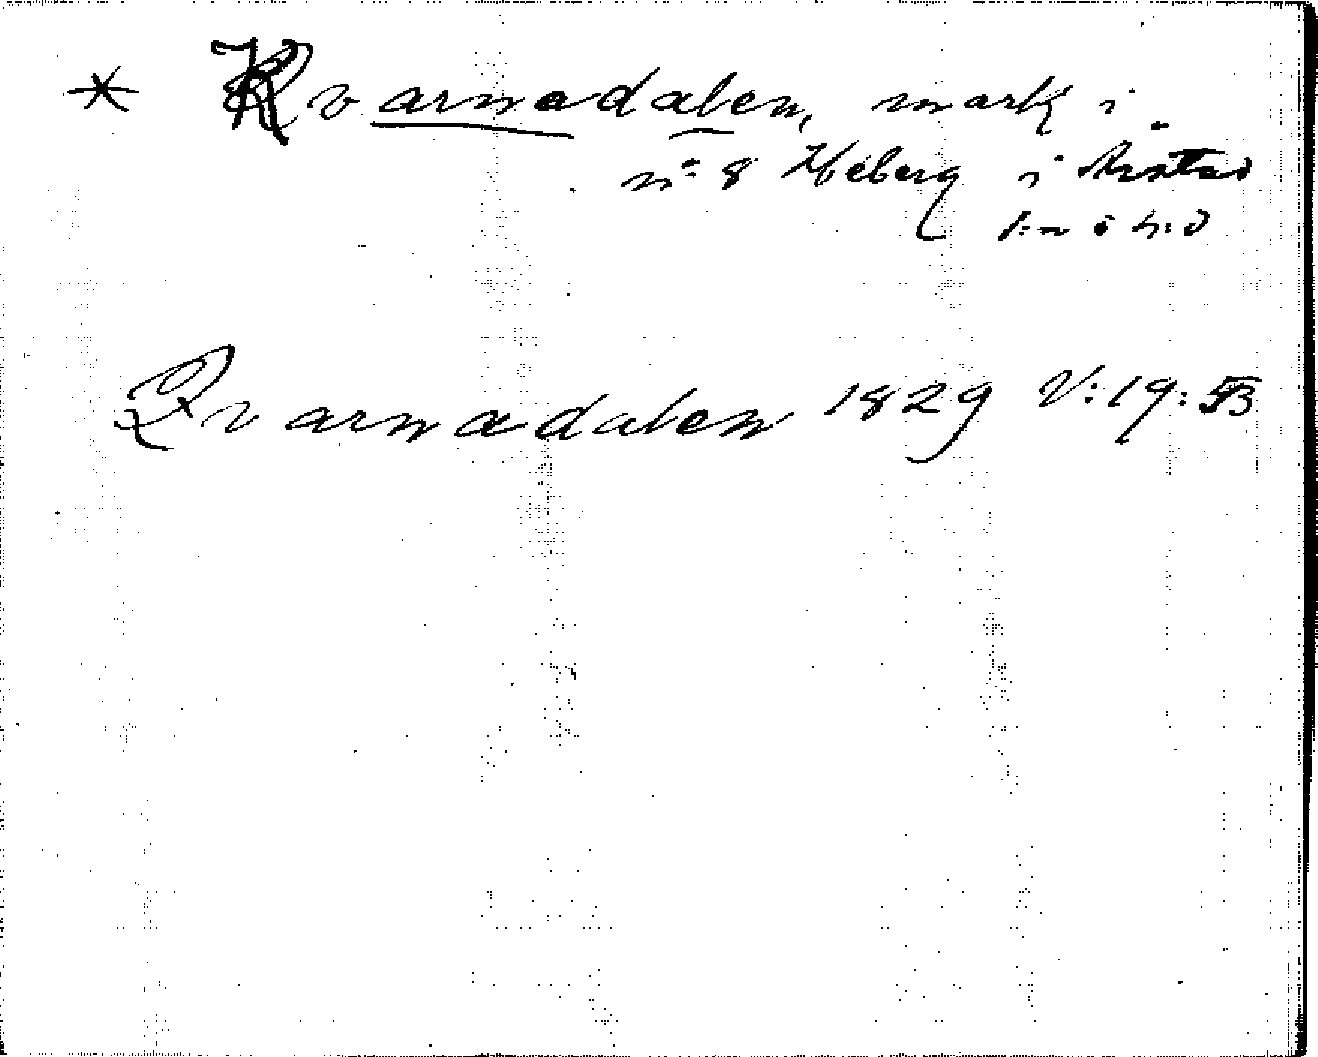 * Kvarnadalen, mark i
nº 8 Heberg i Årstad
s:n o h:d
Qvarnadalen 1829 V:19: